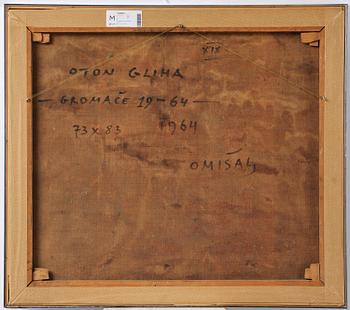 M
XIX
OTON GLIHA
— GROMAČE 19-64 —
73 x 83 1964
OMIŠALJ